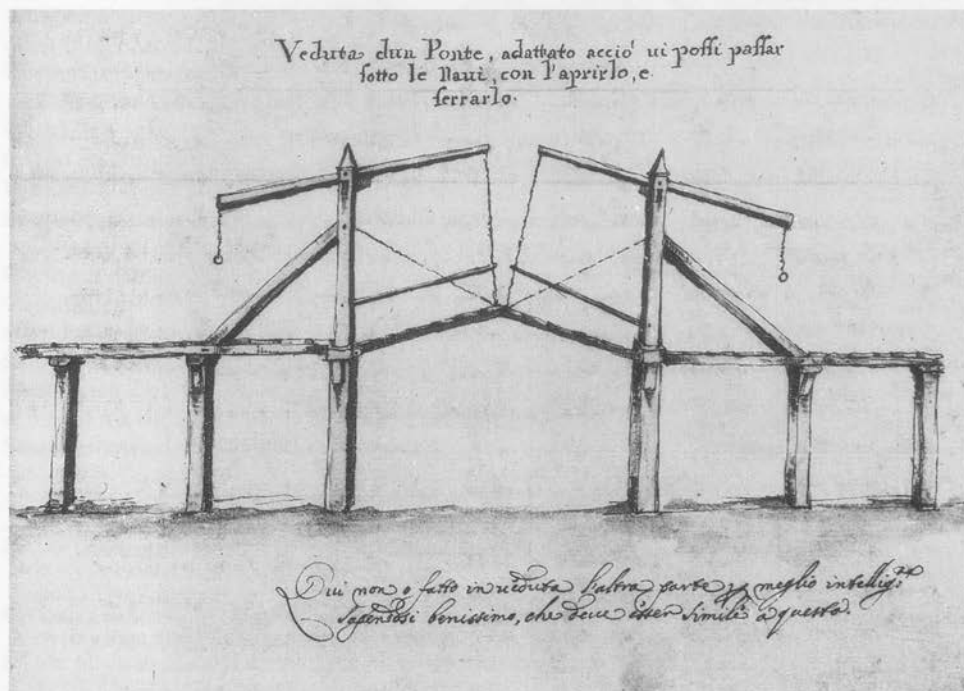 Veduta dun Ponte, adattato acciò ui poſſi paſſar
ſotto le Naui, con l'aprirlo, e
ſerrarlo.
Qui non o fatto in ueduta l'altra parte ꝑ meglio intellig.za
Sapendosi benissimo, che deue esser simile à questa.